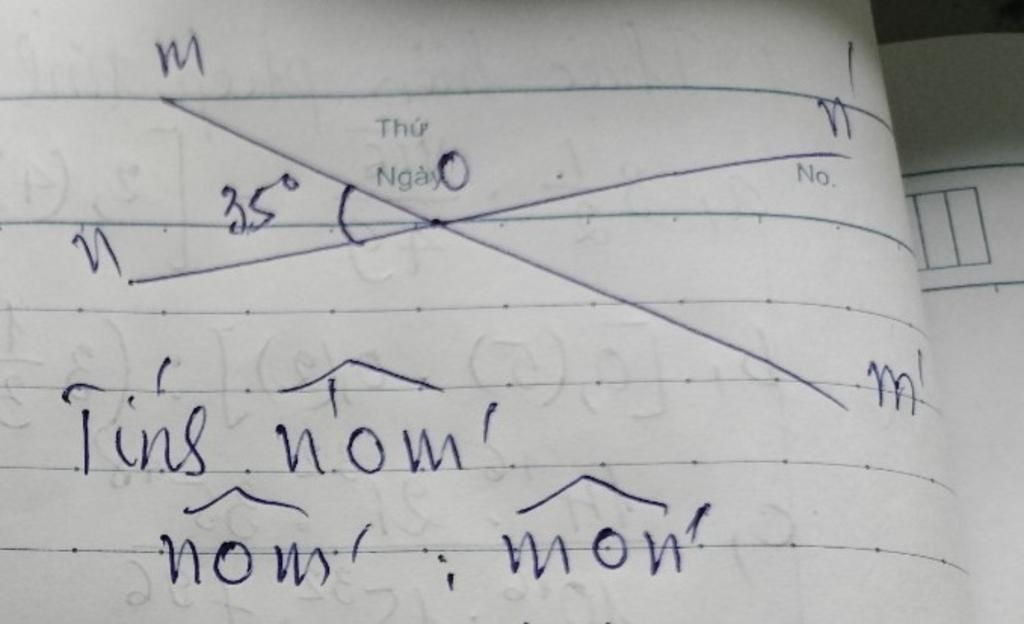 m
n'
Thứ
Ngày O
No.
35°
n
m'
Tính n'om'
nom' ; mon'